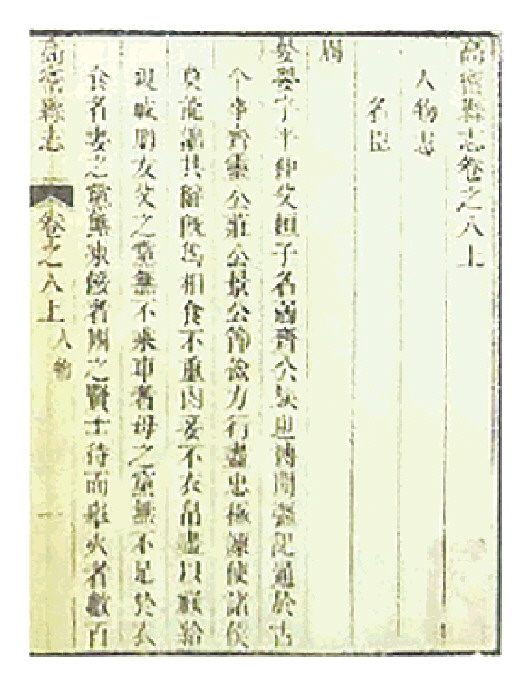 高密縣志卷之八上
人物志
名臣
周
晏嬰字平仲父桓子名弱齊公族也博聞強記通於古
今事齊靈公莊公景公節儉力行盡忠極諫使諸侯
莫能詘其辭既為相食不重肉妾不衣帛盡以祿給
親戚朋友父之黨無不乘車者母之黨無不足於衣
食者妻之黨無凍餒者國之賢士待而舉火者數百
高密縣志
卷之八上
人物
一